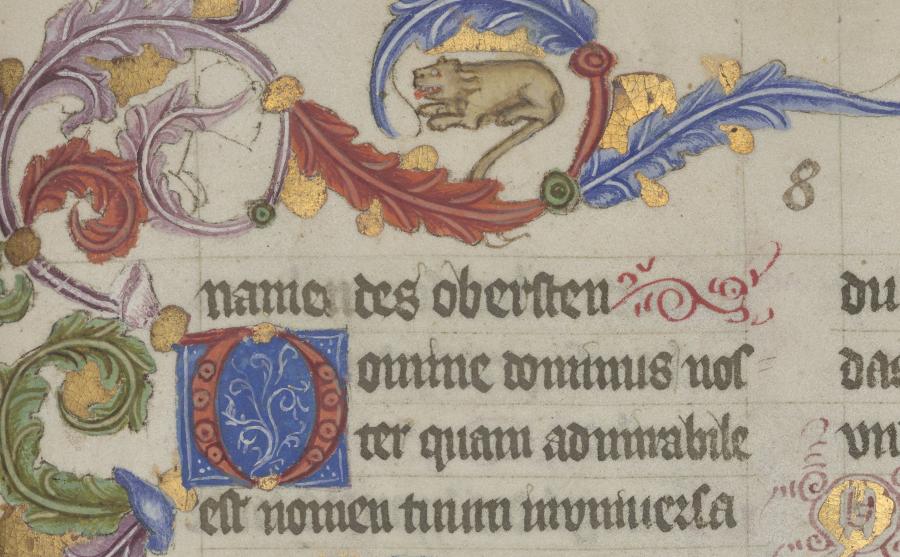 8
namen des obersten
Domine dominus nos
ter quam admirabile
est nomen tuum in vniuersa
du
das
vn